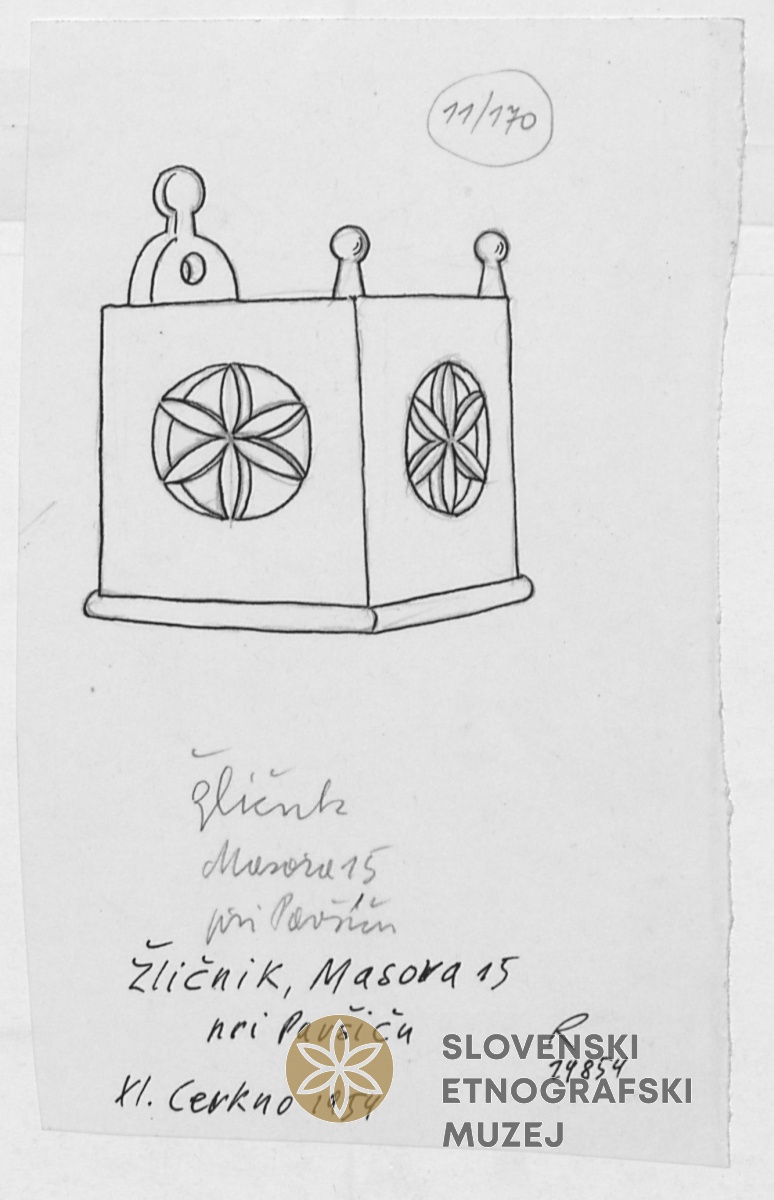 11/170
Žličnik
Masora 15
pri Pavšiču
Žličnik, Masora 15
pri Pavšiču
XI. Cerkno 1954
R
SLOVENSKI
ETNOGRAFSKI
MUZEJ